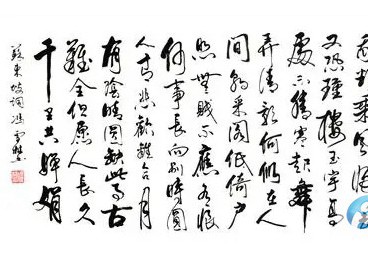 欲乘風歸
又恐瓊樓玉宇高
處不勝寒起舞
弄清影何似在人
間轉朱閣低綺戶
照無眠不應有恨
何事長向別時圓
人有悲歡離合月
有陰晴圓缺此事古
難全但願人長久
千里共嬋娟
蘇東坡詞